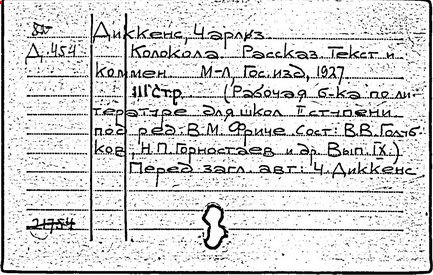 Диккенс, Чарльз.
Д.454 Колокола. Рассказ. Текст и
коммен. М-Л, Гос. изд., 1927.
111 стр. (Рабочая б-ка по ли-
тературе для школ II ступени
под ред: В.М. Фриче. Сост: В.В. Голуб-
ков, Н.П. Горностаев и др. Вып. IX.)
Перед загл. авт: Ч. Диккенс.
21754